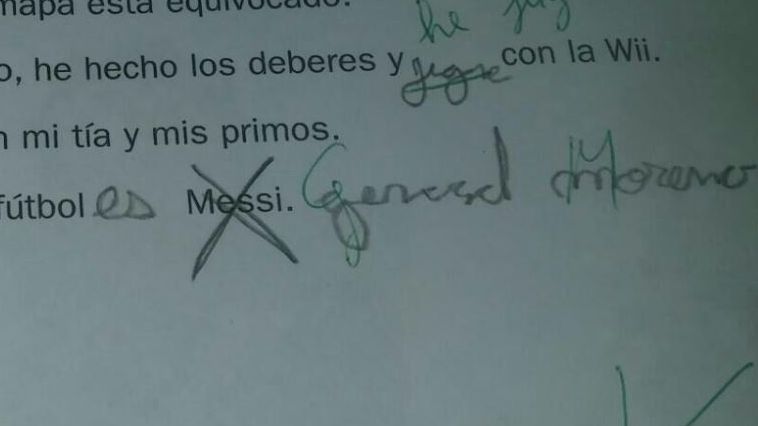 mapa está equivocado.
he jug
o, he hecho los deberes y jugue con la Wii.
n mi tía y mis primos.
fútbol es Messi. General Moreno